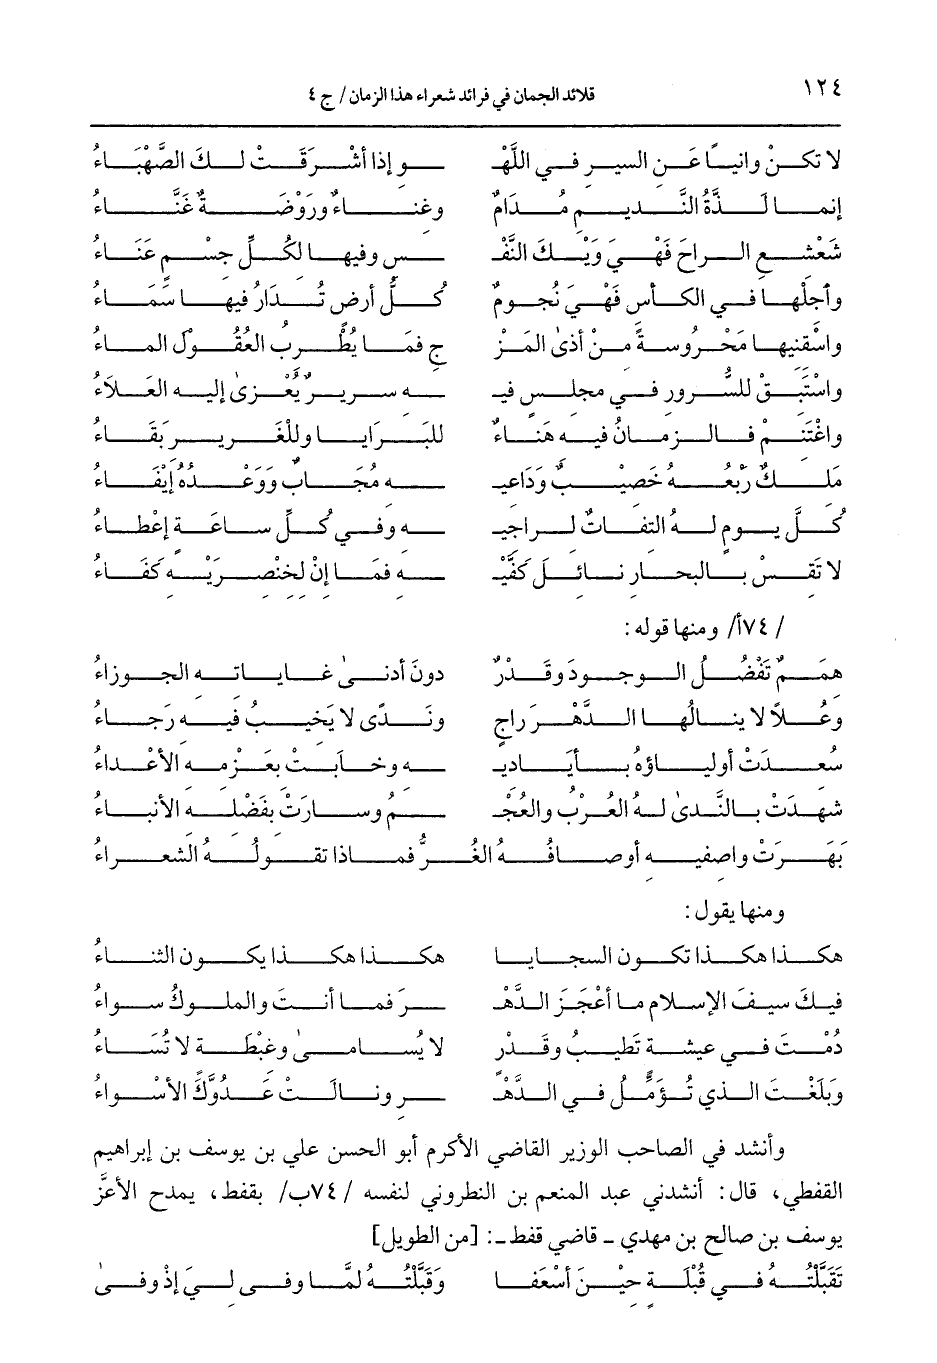 ١٢٤
قلائد الجمان في فرائد شعراء هذا الزمان/ ج ٤
لا تكنْ وانياً عَن السير في اللَّهْـ ـو إذا أشْرَقَتْ لكَ الصَّهْبَاءُ
إنما لَذَّةُ النَّديمِ مُدَامٌ وغناءٌ ورَوْضَةٌ غَنَّاءُ
شَعْشع الراحَ فَهْيَ وَيْكَ النَّفْـ ـس وفيها لكُلِّ جسْمٍ عَنَاءُ
وأجلُها في الكأس فَهْيَ نُجومٌ كُلُّ أرض تُدَارُ فيها سَمَاءُ
واسْقنيها مَحْروسةً منْ أذىٰ المَزْ ج فمَا يُطْرب العُقُولَ الماءُ
واسْتَبقْ للسُّرور في مجلس فيـ ـه سريرٌ يُعْزىٰ إليه العَلاَءُ
واغْتَنمْ فالزمانُ فيه هَنَاءٌ للبَرَايا وللغَرير بَقَاءُ
مَلكٌ رَبْعُهُ خَصيبٌ وَدَاعيـ ـه مُجَابٌ وَوَعْدُهُ إيْفَاءُ
كُلَّ يومٍ لهُ التفاتٌ لراجيـ ـه وفي كُلِّ ساعَة إعْطاءُ
لا تَقسْ بالبحار نائلَ كَفَّيْـ ـه فمَا إنْ لخنْصرَيْه كَفَاءُ
/ ٧٤أ/ ومنها قوله:
همَمٌ تَفْضُلُ الوجودَ وقَدْرٌ دونَ أدنىٰ غاياته الجوزاءُ
وعُلاً لا ينالُها الدَّهْرَ راجٍ ونَدًى لا يَخيبُ فيه رَجاءُ
سُعدَتْ أولياؤهُ بأيَاديـ ـه وخابَتْ بعَزْمه الأعْداءُ
شهدَتْ بالنَّدىٰ لهُ العُرْبُ والعُجْـ ـمُ وسارَتْ بفَضْله الأنباءُ
بَهَرَتْ واصفيه أوصافُهُ الغُرُّ فماذا تقولُهُ الشعراءُ
ومنها يقول:
هكذا هكذا تكون السجايا هكذا هكذا يكون الثناءُ
فيكَ سيفَ الإسلام ما أعْجَزَ الدَّهْـ ـرَ فما أنتَ والملوكُ سواءُ
دُمْتَ في عيشة تَطيبُ وقَدْر لا يُسامىٰ وغبْطَة لا تُسَاءُ
وَبَلَغْتَ الذي تُؤَمِّلُ في الدَّهْـ ـر ونالَتْ عَدُوَّكَ الأسْواءُ
وأنشد في الصاحب الوزير القاضي الأكرم أبو الحسن علي بن يوسف بن إبراهيم
القفطي، قال: أنشدني عبد المنعم بن النطروني لنفسه /٧٤ب/ بقفط، يمدح الأعزَّ
يوسف بن صالح بن مهدي ـ قاضي قفط ـ: [من الطويل]
تَقَبَّلْتُهُ في قُبْلَةٍ حيْنَ أسْعَفا وَقَبَّلْتُهُ لمَّا وفى ليَ إذْ وفىٰ